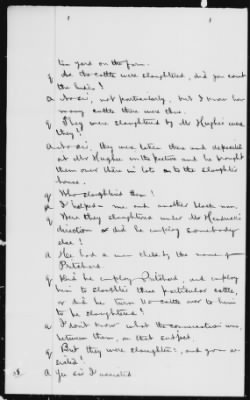 his yard on the farm.
Q As the cattle were slaughtered, did you count
the hides?
A No sir, not particularly, but I know how
many cattle there were there.
Q They were slaughtered by Mr Hughes were
they?
A No sir, they were taken there and deposited
at Mr Hughes in the pasture and he brought
them over there in lots to the slaughter
house.
Q Who slaughtered them?
A I helped – me and another black man.
Q Were they slaughtered under Mr
direction or did he employ somebody
else?
A He had a man there by the name of
Pritchard.
Q Did he employ Pritchard, and employ
him to slaughter these particular cattle,
or did he turn the cattle over to him
to be slaughtered?
A I don't know what the conversation was
between them, on that subject.
Q But they were slaughtered, and you as-
sisted?
A Yes sir I assisted